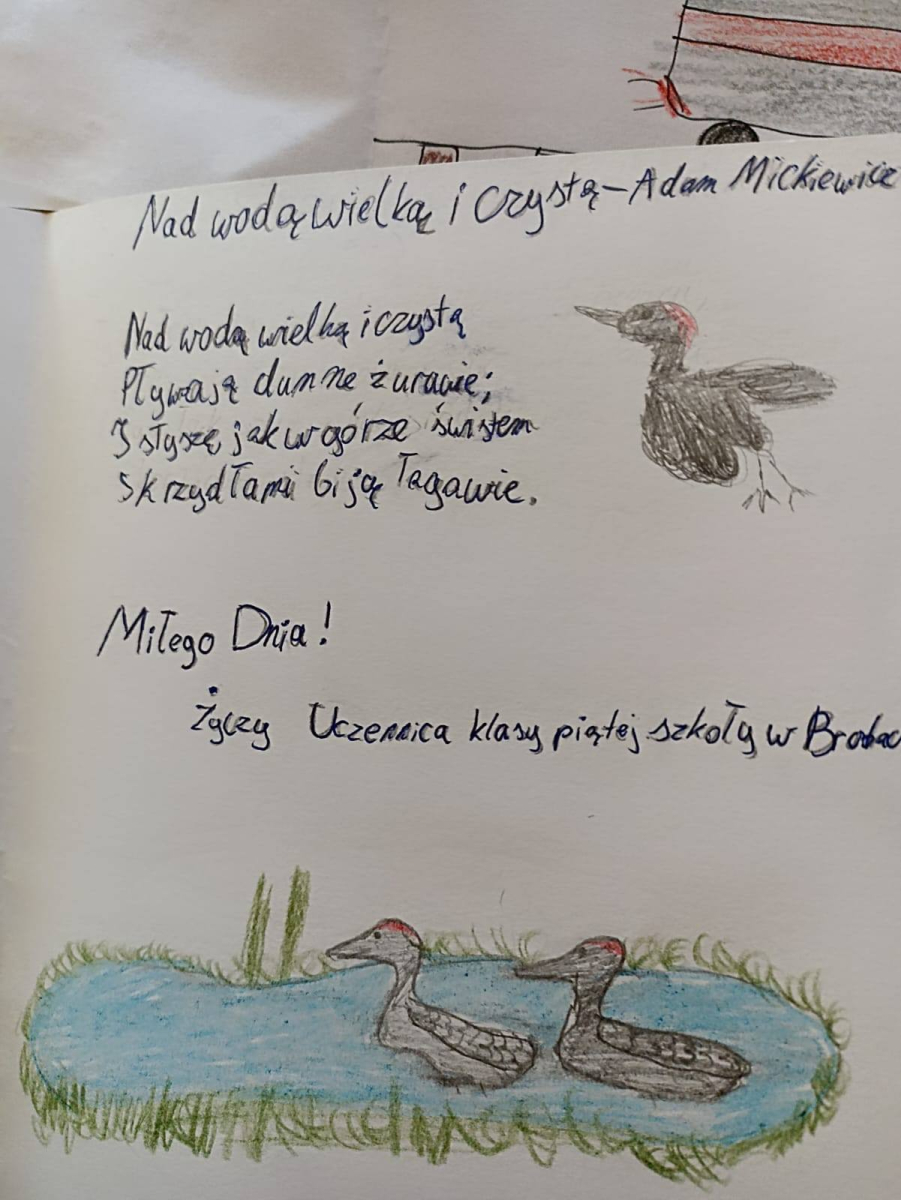 Nad wodą wielką i czystą – Adam Mickiewicz
Nad wodą wielką i czystą
Pływają dumne żurawie;
I słyszę jak w górze świstem
Skrzydłami biją łagawie.
Miłego Dnia!
Życzy Uczennica klasy piątej szkoły w